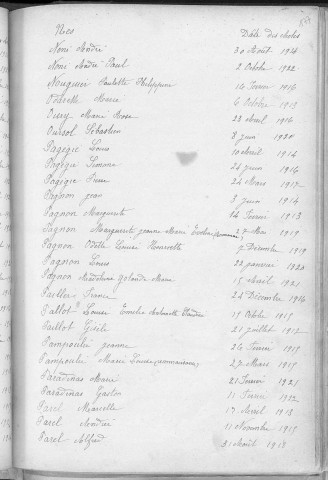 Nées Date des actes
Noni André 30 Août 1914
Noni André Paul 2 Octobre 1922
Nouguier Paulette Philippine 16 Février 1916
Marie 6 Octobre 1915
Oury Marie Rose 23 Avril 1916
Oursol Sébastien 8 Juin 1920
Pagégie Louis 10 Avril 1914
Pagégie Simone 24 Juin 1916
Pagégie 24 Mars 1917
Pagnon Jean 8 Juin 1914
Pagnon Marguerite 14 Février 1913
Pagnon Marguerite Jeanne Marie 27 Mai 1919
Pagnon Odette Louise Henriette 7 Décembre 1919
Pagnon Louis 22 Janvier 1920
Pagnon Madeleine Yolande Marie 15 Avril 1921
Pailler France 24 Décembre 1914
Pallot Louise Emilie Antoinette Claudine 15 Octobre 1915
Paillot Gisèle 21 Juillet 1912
Pampoulie Jeanne 26 Février 1915
Pampoulie Marie Louise 27 Mars 1915
Paradinas Marie 21 Février 1921
Paradinas Gaston 11 Février 1922
Parel Marcelle 13 Avril 1913
Parel Andrée 11 Novembre 1915
Parel Alfred 31 Août 1913